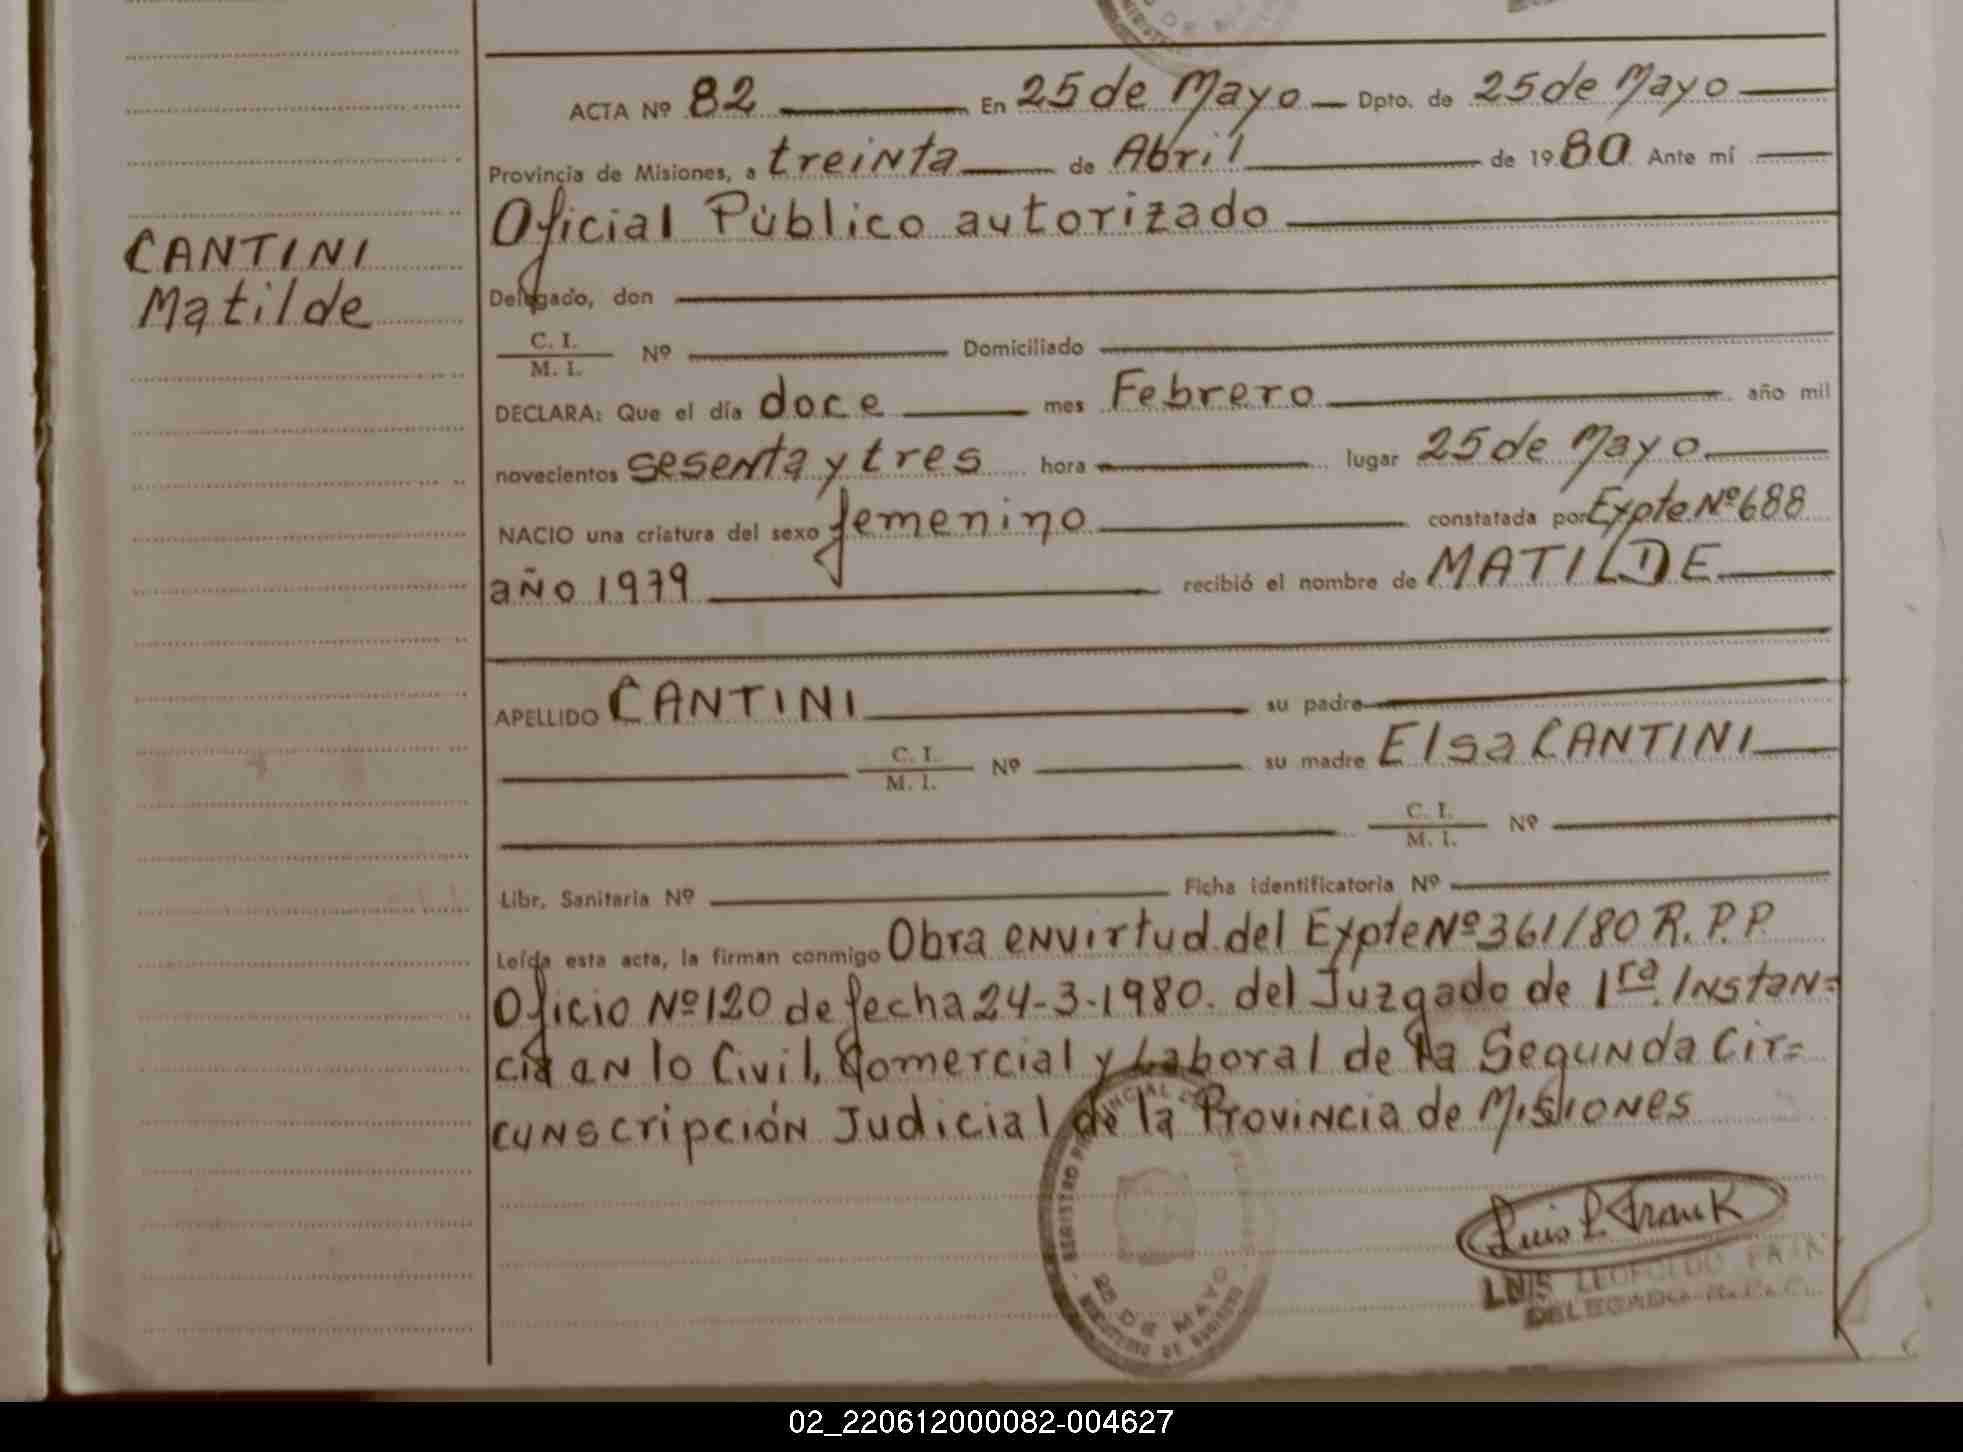 ACTA Nº 82 En 25 de Mayo Dpto. de 25 de Mayo
Provincia de Misiones, a treinta de Abril de 1980 Ante mí
Oficial Público autorizado
CANTINI
Matilde
Delegado, don
C. I.
M. I. Nº Domiciliado
DECLARA: Que el día doce mes Febrero año mil
novecientos sesenta y tres hora lugar 25 de Mayo
NACIO una criatura del sexo femenino constatada por Expte Nº 688
año 1979 recibió el nombre de MATILDE
APELLIDO CANTINI su padre
C. I.
M. I. Nº su madre Elsa CANTINI
C. I.
M. I. Nº
Libr. Sanitaria Nº Ficha identificatoria Nº
Leída esta acta, la firman conmigo Obra en virtud del Expte Nº 361/80 R.P.P.
Oficio Nº 120 de fecha 24-3-1980. del Juzgado de 1ra. Instan=
cia en lo Civil, Comercial y Laboral de la Segunda Cir=
cunscripción Judicial de la Provincia de Misiones
Luis L. Frank
LUIS LEOPOLDO
DELEGADO
REGISTRO PROVINCIAL
25 DE MAYO
02_220612000082-004627